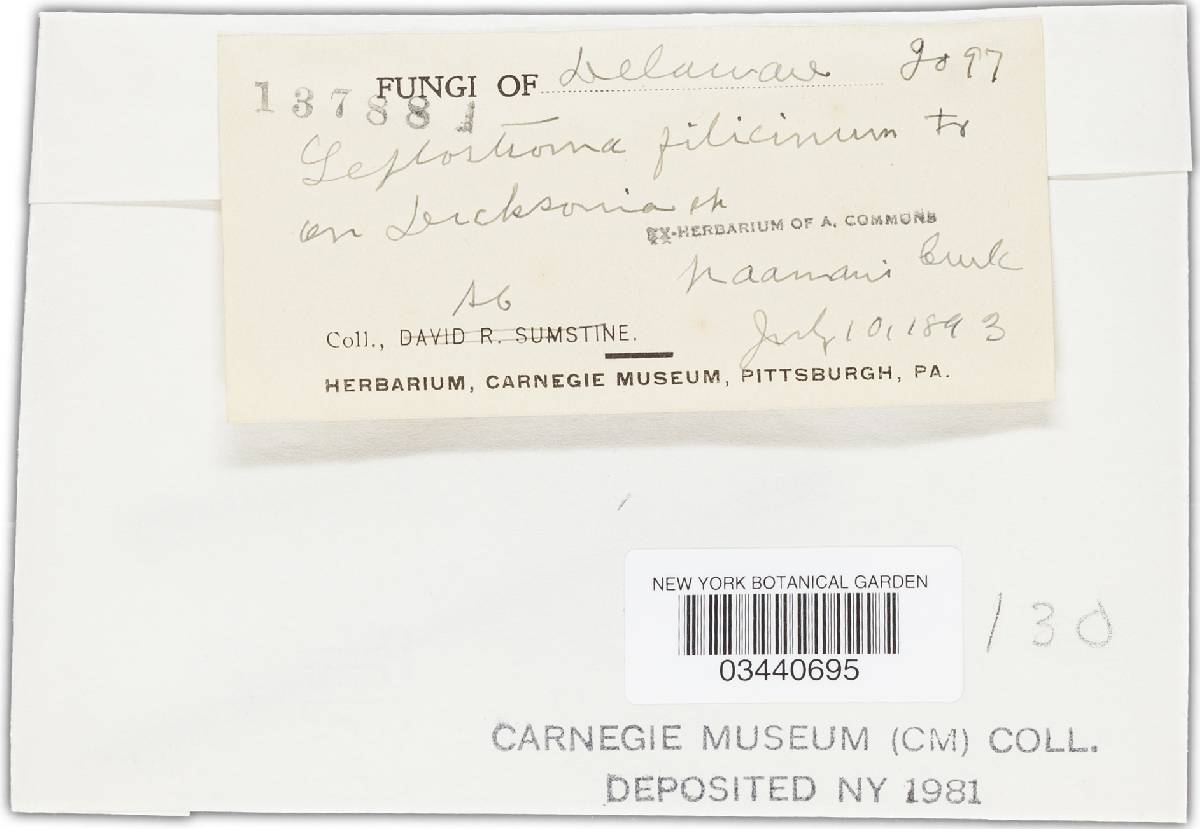 137881 FUNGI OF Delaware 2097
Leptostroma filicinum Fr
on Dicksonia
EX-HERBARIUM OF A. COMMONS
Naamans Creek
Coll., DAVID R. SUMSTINE.
July 10, 1893
HERBARIUM, CARNEGIE MUSEUM, PITTSBURGH, PA.
NEW YORK BOTANICAL GARDEN
03440695
130
CARNEGIE MUSEUM (CM) COLL.
DEPOSITED NY 1981